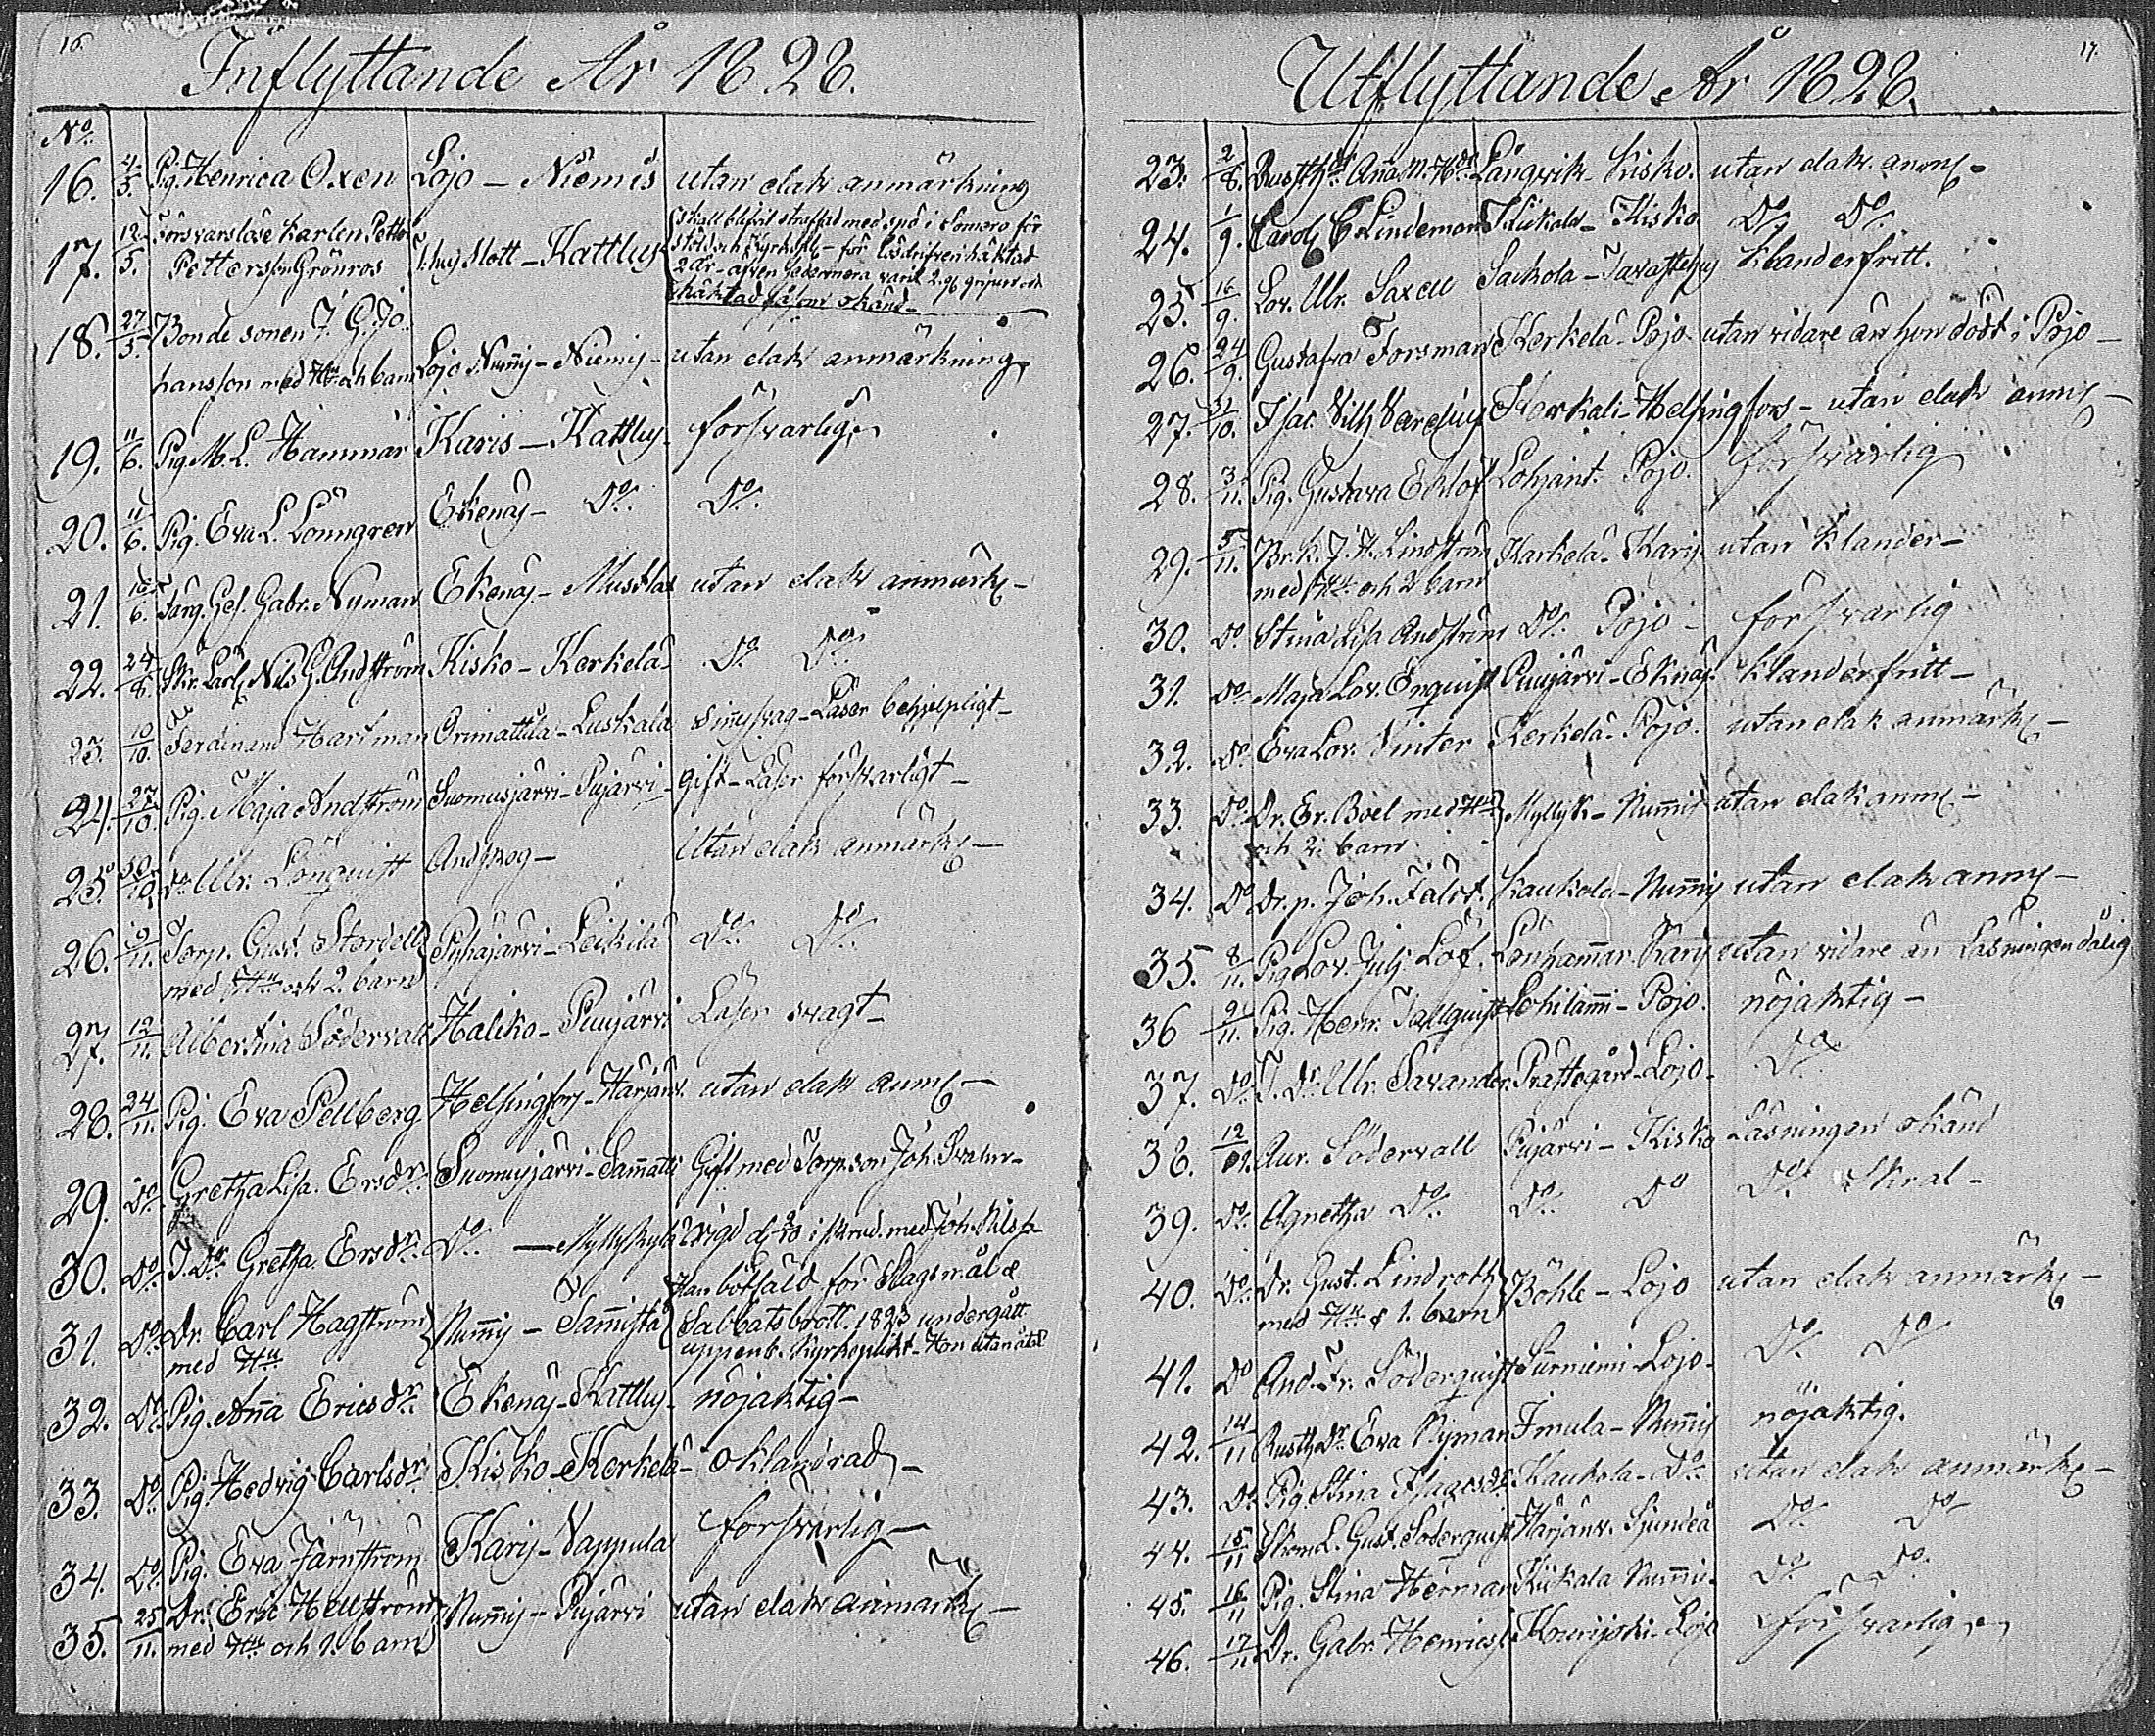 16.
Inflyttande År 1828.
No
16. 4/5. Pig. Henrica Oxen Lojo - Niemis utan elak anmärkning
17. 12/5. Försvarslöse Karlen Petter
Pettersson Grönros slott - Kattlus
skall blifvit straffad med spö i Somero för
stöld och
2 år
häktad okänd
18. 27/5. Bonde sonen J. G. Jo-
hansson med Hu och barn Lojo Numis - Niemis - utan elak anmärkning
19. 11/6. Pig. M. L. Hammar Karis - Kattlus försvarlig
20. 11/6. Pig. Eva L. Lönngren Ekenäs - Do Do
21. /6. Färg. Ges. Gabr. Nyman Ekenäs - Muskla utan elak anmärk -
22. 24/8. Nils G. Andström Kisko - Kerkelä Do Do
23. 10/10. Ferdinand Hartman Orimattila - Luskala - Läser behjelpligt -
24. 27/10. Pig. Maja Andström Suomusjärvi - Pujärvi - gift - Läser försvarligt -
25. 30/10. Do Ulr. Lönquist Andskog - Utan elak anmärk -
26. 9/11. Torp. Gust. Stordell
med Hu och 2. barn Pyhäjärvi - Leikilä Do Do
27. 12/11. Albertina Södervall Haliko - Puujärvi Läser svagt -
28. 24/11. Pig. Eva Sellberg Helsingfors - Harjanv. utan elak anm -
29. Do Gretha Lisa Ersdr. Suomusjärvi - Sammatti Gift med Torp. son Joh.
30. Do J. Dr. Gretha Ersdr. Do - Myllykylä Vigd med Joh. Nilss.
31. Do Dr. Carl Hagström
med Hu Numis - Sannista
Han bötfäld för Slagsmål &
Sabbatsbrott. 1823 undergått
uppenb. Kyrkoplikt - Hon utan
32. Do Pig. Anna Ericsdr. Ekenäs - Kattlus - nöjaktig -
33. Do Pig. Hedvig Carlsdr. Kisko - Kerkelä - oklandrad -
34. Do Pig. Eva Järnström Karis - Vappula försvarlig -
35. 25/11. Dr. Eric Hellström
med Hu och 1. barn Numis - Pujärvi utan elak anmärk -
17.
Utflyttande År 1828.
23. 2/8. Långvik - Kisko. utan elak. anm -
24. 1/9. Carol. C. Lindeman Kiikala - Kisko Do Do
25. 16/9. Lov. Ulr. Saxen Saukola - Tavastehus Klanderfritt.
26. 24/9. Gustafva Forsman Kerkelä - Pojo. utan vidare än hon född i Pojo -
27. 31/10. Vilh. Karkali - Helsingfors - utan elak anm -
28. 3/11. Pig. Gustava Eklöf Lohjant. Pojo. försvarlig
29. 5/11. Br. k. J. H. Lindström
med Hu och 2 barn Karkelä - Karis utan klander -
30. Do Stina Lisa Andström Do Pojo - försvarlig
31. Do Maja Lov. Enquist Puujärvi - Eknäs. klanderfritt -
32. Do Eva Lov. Vinter Kerkelä - Pojo. utan elak anmärk -
33. Do Dr. Er. Boel med Hu
och 2. barn Myllyk - Numis utan elak anm -
34. Do Dr. p. Joh. Kaukola - Numis utan elak anm -
35. 8/11. Pig. Lov. Julj. Löf. Lönhammar - Karis utan vidare än Läsningen dålig
36 9/11. Pig. Henr. Tallquist Lohilammi - Pojo. nöjaktig -
37. Do J. Dr. Ulr. Savander. Prästegård - Lojo - Do
38. 12/ Aur. Södervall Pujärvi - Kisko Läsningen okänd
39. Do Agnetha Do Do Do Do Skral -
40. Do Dr. Gust. Lindroth
med Hu & 1. barn Böhle - Lojo utan elak anmärk -
41. Do And. Fr. Söderquist Surniemi - Lojo - Do Do
42. 14/11 Rusth. Dr. Eva Nyman Immula - Numis nöjaktig.
43. Do Pig. Stina Isacsdr. Kaukola - Do utan elak anmärk -
44. 15/11 Gust. Söderquist Harjanv. Sjundeå Do Do
45. 16/11 Pig. Stina Herman Kiikala Numis. Do Do
46. 17/11. Dr. Gabr. Henricss. Kourijoki - Lojo försvarlig